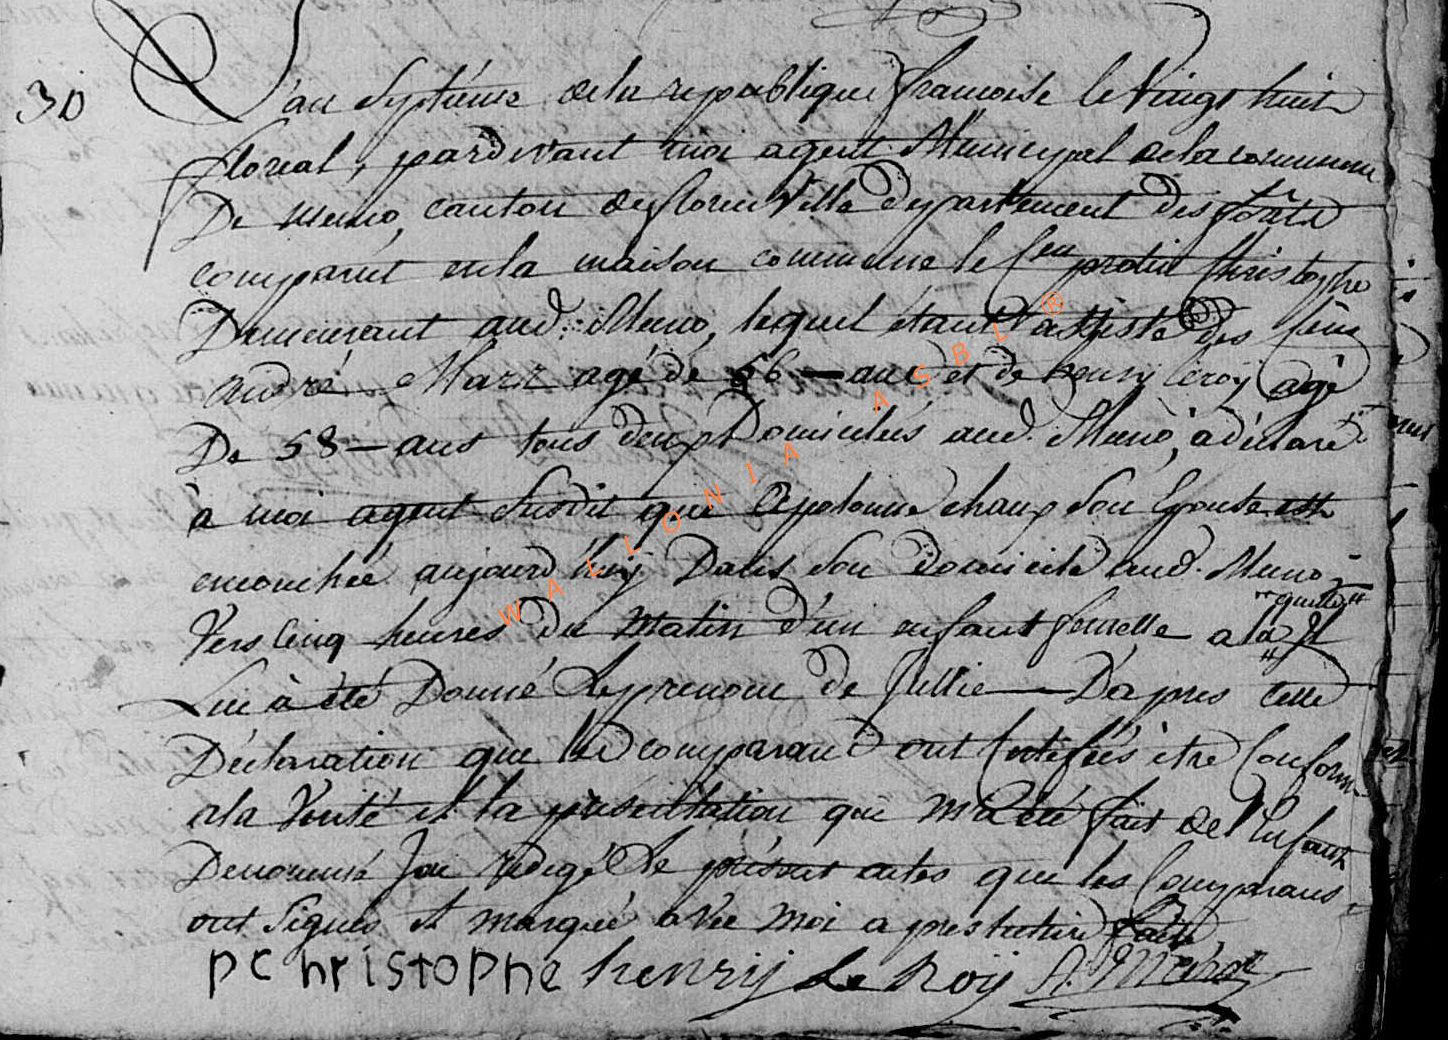 30
L'an Septieme de la republique francoise le Vingt huit
floreal, pardevant moi agent Municipal de la commune
De Muno, canton de florenville departement des forêts
comparut en la maison commune le Cen protin Christophe
Demeurant aud. Muno, lequel étant assisté des Cens
André Marx agé de 56 – ans et de henry leroy agé
De 58 – ans tous deux Domiciliés aud. Muno, à déclaré
à moi agent Susdit que Apolonne champ Son Epouse est
accouchée aujourd'huy Dans Son domicile aud. Muno
Vers Cinq heures du Matin d'un enfant femelle a laquelle Il
Lui à été Donné Le prenom de Jullie – D'après cette
Déclaration que les comparans ont Certifiés être Conforme
a la Verité et la présentation qui m'a été fait de l'Enfant
Denommé J'ai redigé Le présent actes que les Comparans
ont Signés et marqué avec moi a prestutire faite
pchristophe henrij Le Roij A. Marx
WALLONIA ASBL ®